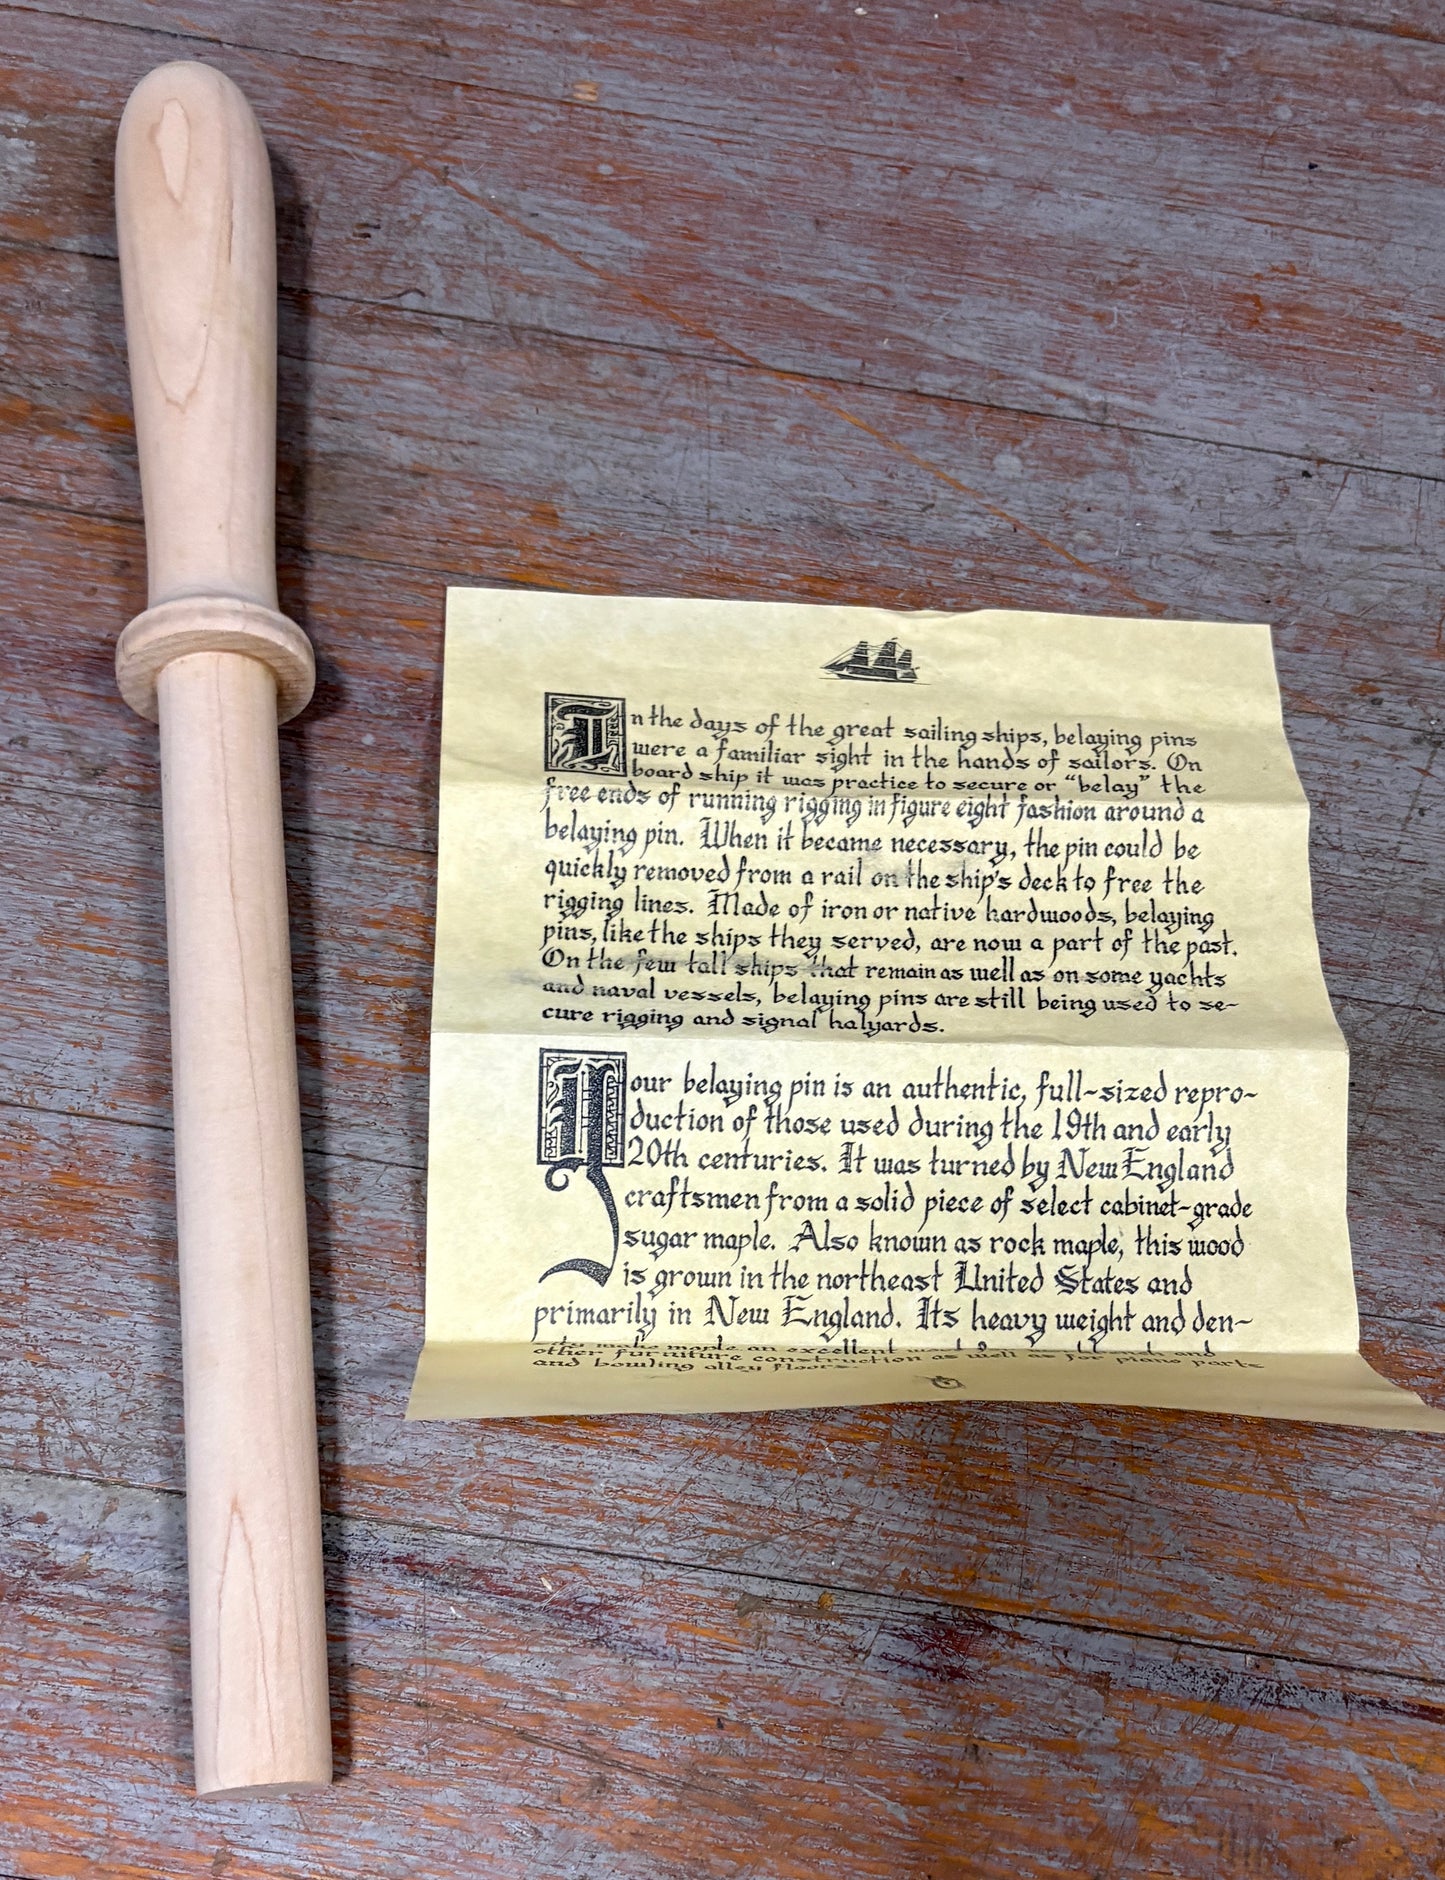 In the days of the great sailing ships, belaying pins
were a familiar sight in the hands of sailors. On
board ship it was practice to secure or “belay” the
free ends of running rigging in figure eight fashion around a
belaying pin. When it became necessary, the pin could be
quickly removed from a rail on the ship's deck to free the
rigging lines. Made of iron or native hardwoods, belaying
pins, like the ships they served, are now a part of the past.
On the few tall ships that remain as well as on some yachts
and naval vessels, belaying pins are still being used to se-
cure rigging and signal halyards.
Your belaying pin is an authentic, full-sized repro-
duction of those used during the 19th and early
20th centuries. It was turned by New England
craftsmen from a solid piece of select cabinet-grade
sugar maple. Also known as rock maple, this wood
is grown in the northeast United States and
primarily in New England. Its heavy weight and den-
sity make maple an excellent and
other furniture construction as well as for piano parts
and bowling alley floors.